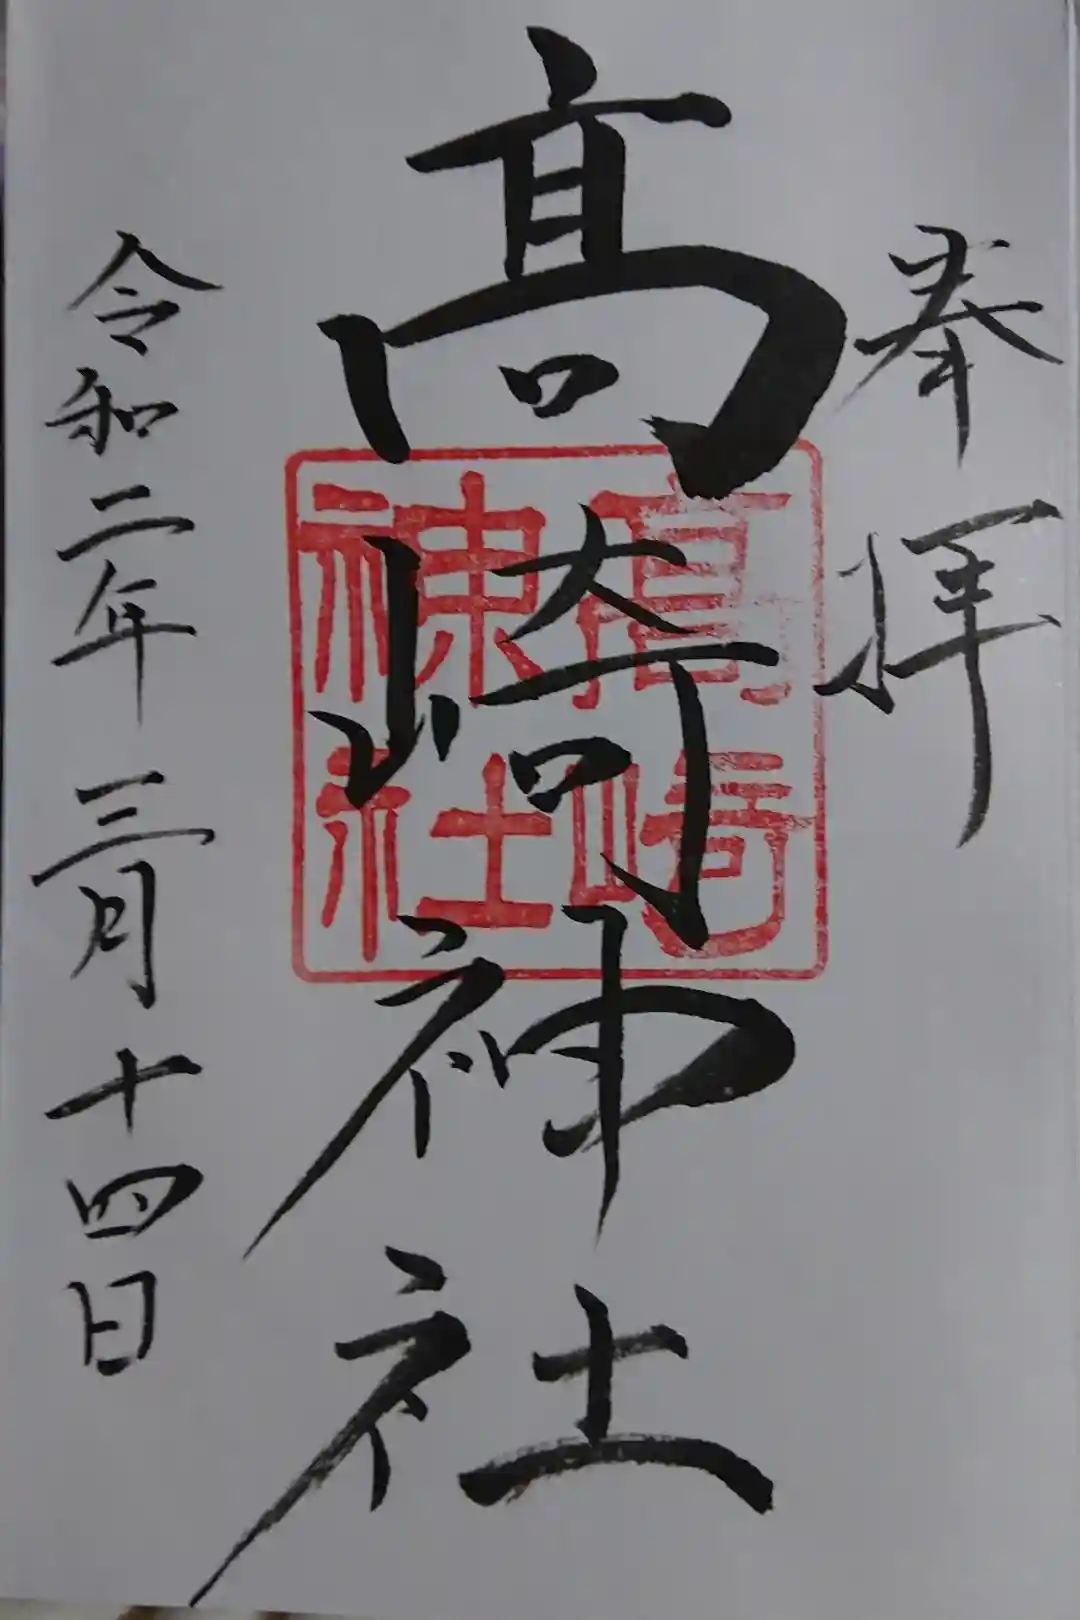 奉拝
髙崎神社
髙崎
神社
令和二年三月十四日